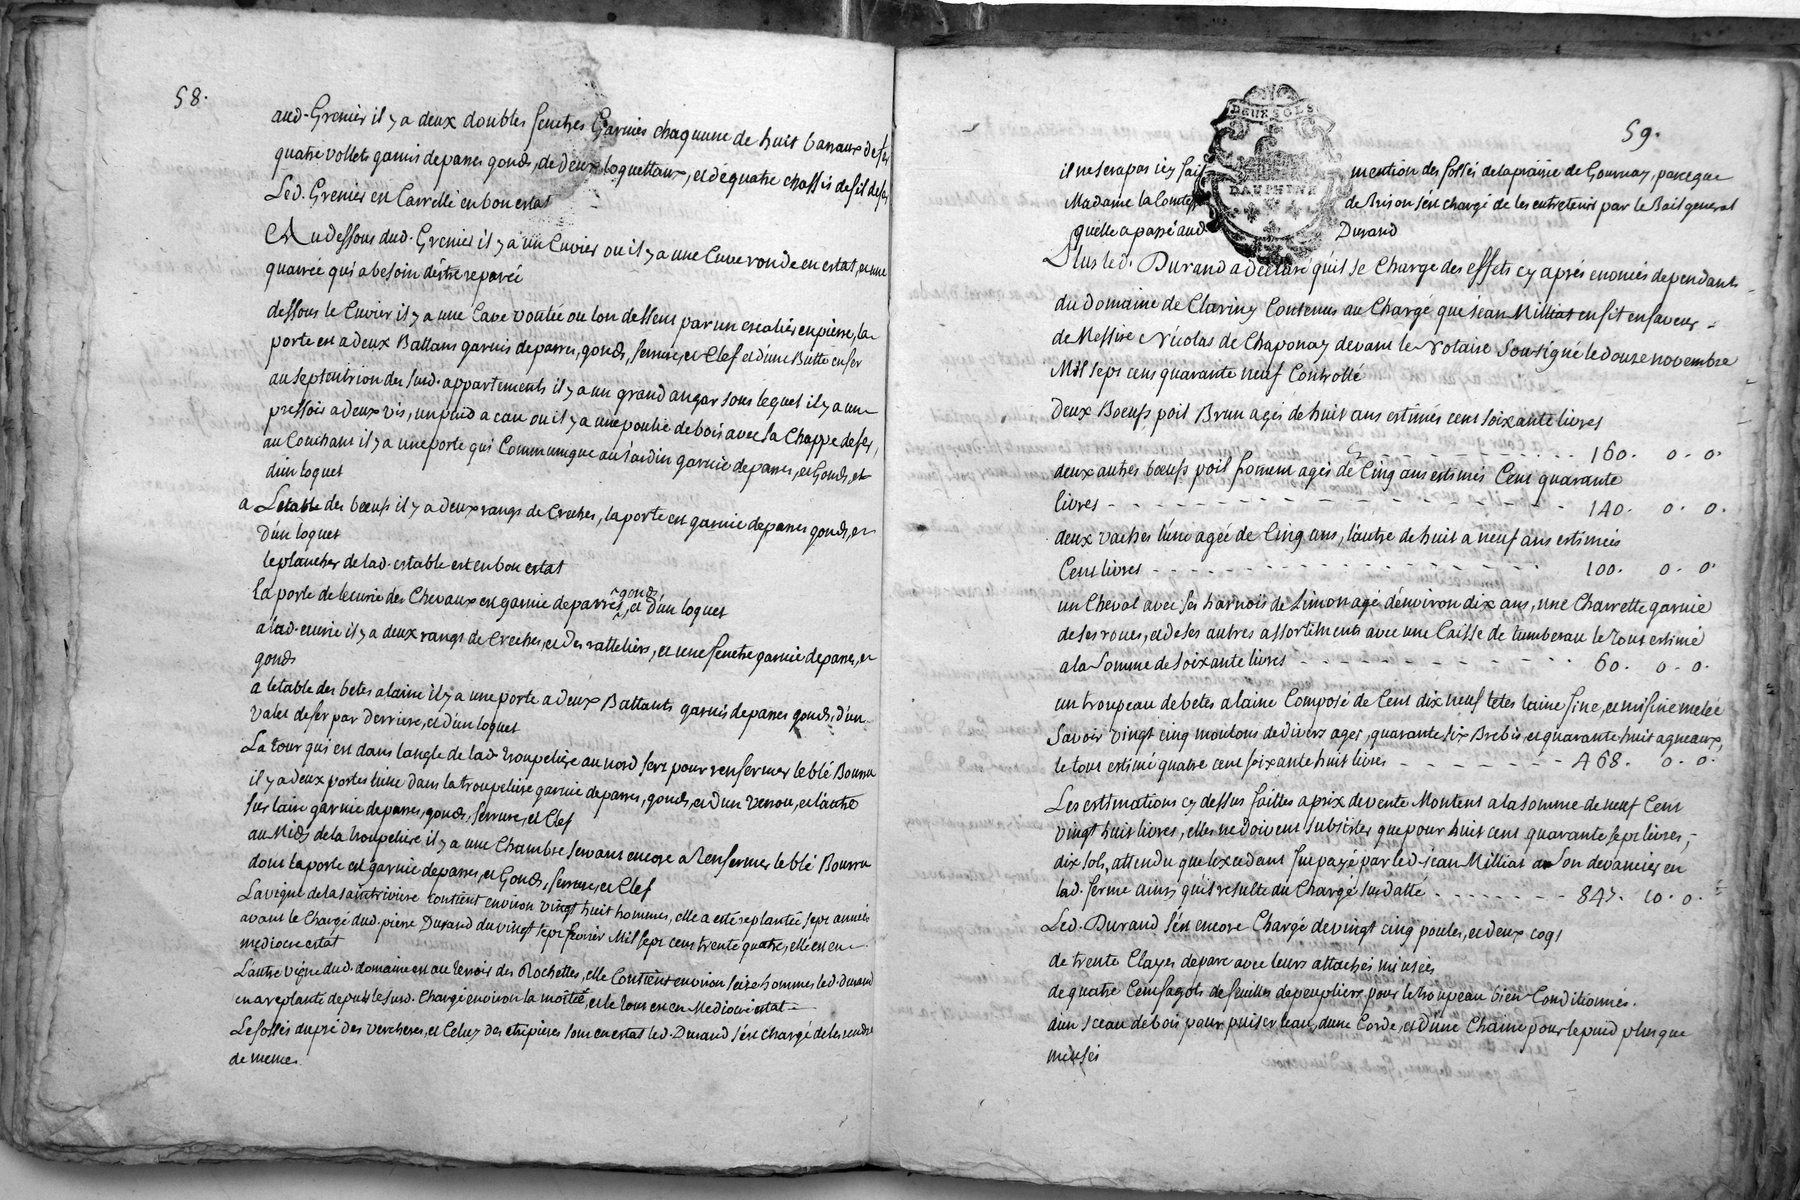 58.
aud. Grenier il y a deux doubles fenetres Garnies chaqunne de huit barraux de fer
quatre vollets garnis de parres gonds, de deux loquettaux, et de quatre chassis de fil de fer
Led. Grenier en Carrellé en bon estat
Au dessous dud. Grenier il y a un Cuvier ou il y a une Cuve ronde en estat, et une
quarrée qui a besoin d'être reparée
dessous le Cuvier il y a une Cave voutée ou lon dessent par un escalier en pierre, la
porte est a deux Battans garnis de parres, gonds, serrure, et Clef et d'une Butte en fer
au septentrion des susd. appartements il y a un grand angar sous lequel il y a un
pressoir a deux vis, un puid a eau ou il y a une poulie de bois avec sa Chappe de fer,
au Couchant il y a une porte qui Communique au Jardin garnie de parres, et Gonds, et
d'un loquet
a Letable des bœufs il y a deux rangs de Creches, la porte est garnie de parres gonds, et
d'un loquet
le plancher de lad. estable est en bon estat
la porte de lecurie des Chevaux est garnie de parres, gonds, et d'un loquet
a lad. ecurie il y a deux rangs de Creches, et des ratteliers, et une fenetre garnie de parres, et
gonds
a letable des betes a laine il y a une porte a deux Battants garnis de parres gonds, d'un
valet de fer par derriere, et d'un loquet
La tour qui est dans langle de lad. troupeliere au nord sert pour renfermer le blé Bourru
il y a deux portes lune dans la troupeliere garnie de parres, gonds, et d'un verrou, et l'autre
sur laire garnie de parres, gonds, serrure, et Clef
au Midy de la troupeliere il y a une Chambre servant encore a Renfermer le blé Bourru
dont la porte est garnie de parres, et Gonds, serrure, et Clef
La vigne de la contient environ vingt huit hommes, elle a esté replantée sept années
avant le Chargé dud. pierre Durand du vingt sept fevrier Mil sept cent trente quatre, elle est en
mediocre estat
L'autre vigne dud. domaine est au terroir des Rochettes, elle Contient environ seize hommes led. durand
en a replanté depuis le susd. Chargé environ la moitié, et le tout est en Mediocre estat
Les fossés du pré des vercheres, et Celuy des etupieres sont en estat led. Durand s'est chargé de les rendre
de meme
DEUX SOLS
DAUPHINE
59.
il ne sera pas icy fait mention des fossés de la prairie de Gournay, parce que
Madame la Comtesse de Brison s'est chargé de les entretenir par le Bail general
quelle a passé aud. Durand
Plus led. Durand a declaré qu'il se Charge des effets cy aprés enoncés dependants
du domaine de Clariny Contenus au Chargé que Jean Milliat en fit en faveur
de Messire Nicolas de Chaponay devant le Notaire Sousigné le douze novembre
Mil sept cens quarante neuf Controllé
deux Boeufs poil Brun agés de huit ans estimés cent soixante livres
160. 0. 0.
deux autres bœufs poil froment agés de Cinq ans estimés Cent quarante
livres 140. 0. 0.
deux vaches lune agée de Cinq ans, l'autre de huit a neuf ans estimées
Cent livres 100. 0. 0.
un Cheval avec ses harnois de Limon agé d'environ dix ans, une Charrette garnie
de ses roues, et de ses autres assortiments avec une Caisse de tumbereau le Tout estimé
a la Somme de soixante livres 60. 0. 0.
un troupeau de betes a laine Composé de Cent dix neuf tetes laine fine, et mifine melée
Savoir vingt cinq moutons de divers ages, quarante six Brebis, et quarante huit agneaux,
le tout estimé quatre cent soixante huit livres 468. 0. 0.
Les estimations cy dessus faittes a prix de vente Montent a la somme de neuf Cent
vingt huit livres, elles ne doivent subsister que pour huit cent quarante sept livres,
dix sols, attendu que lexcedant fut payé par led. Jean Milliat a Son devancier en
lad. ferme ainsy qu'il resulte du Chargé susdatté 847. 10. 0.
Led. Durand s'est encore Chargé de vingt cinq poules, et deux coqs
de trente Clayes de parc avec leurs attaches miusées
de quatre Cent fagots de feuilles de peupliers pour le troupeau bien Conditionnés.
d'un sceau de bois pour puiser leau, dune Corde, et d'une Chaine pour le puid plus que
miusés